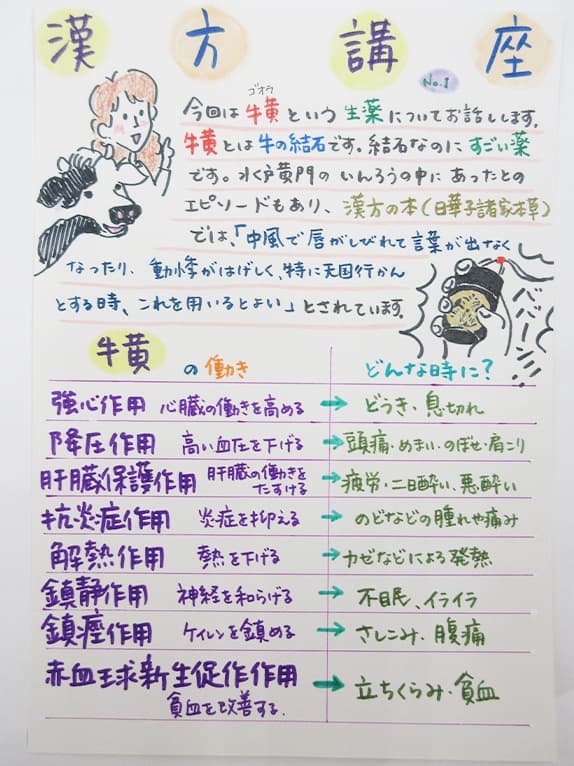 漢方講座
No.1
ゴオウ
今回は牛黄という生薬についてお話しします。
牛黄とは牛の結石です。結石なのにすごい薬
です。水戸黄門のいんろうの中にあったとの
エピソードもあり、漢方の本(日華子諸家本草)
では、「中風で唇がしびれて言葉が出なく
なったり、動悸がはげしく、特に天国行かん
とする時、これを用いるとよい」とされています。
ババーン!!!
牛黄の働き どんな時に?
強心作用 心臓の働きを高める → どうき・息切れ
降圧作用 高い血圧を下げる → 頭痛・めまい・のぼせ・肩こり
肝臓保護作用 肝臓の働きを
たすける → 疲労・二日酔い、悪酔い
抗炎症作用 炎症を抑える → のどなどの腫れや痛み
解熱作用 熱を下げる → カゼなどによる発熱
鎮静作用 神経を和らげる → 不眠、イライラ
鎮痙作用 ケイレンを鎮める → さしこみ・腹痛
赤血球新生促作作用
貧血を改善する. → 立ちくらみ・貧血